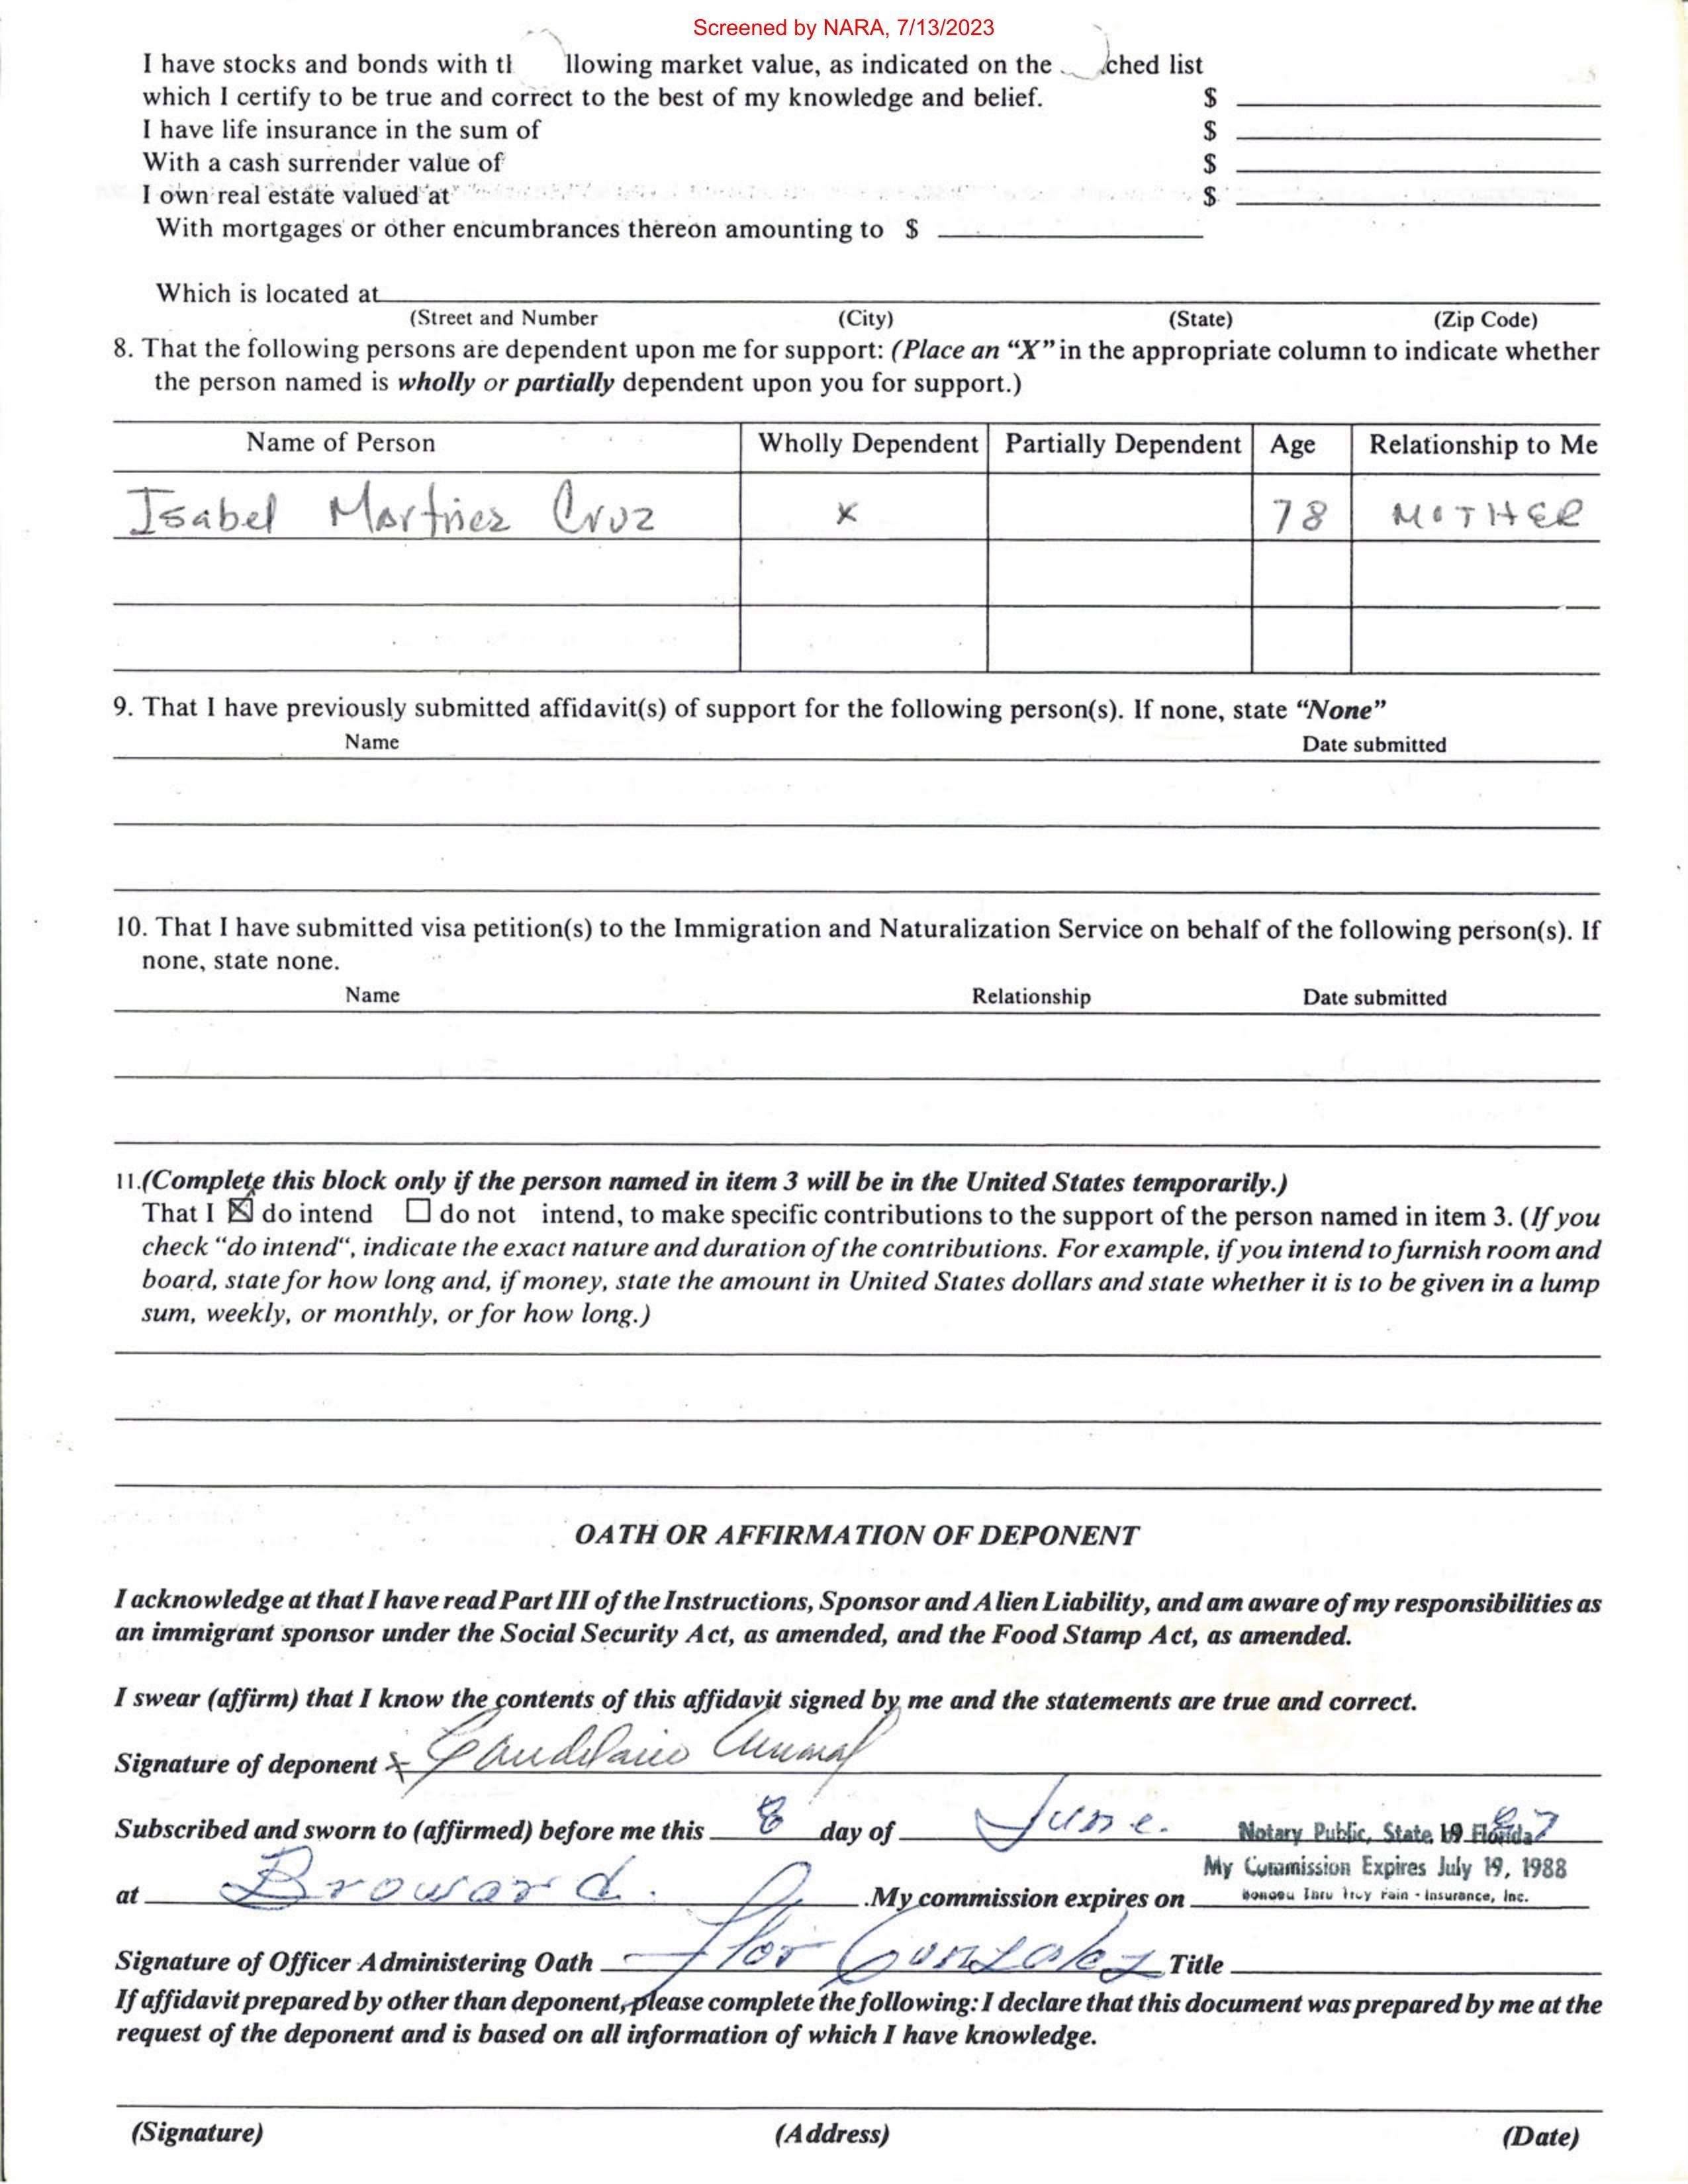 Screened by NARA, 7/13/2023
I have stocks and bonds with tl llowing market value, as indicated on the ched list
which I certify to be true and correct to the best of my knowledge and belief. $
I have life insurance in the sum of $
With a cash surrender value of $
I own real estate valued at $
With mortgages or other encumbrances thereon amounting to $
Which is located at
(Street and Number (City) (State) (Zip Code)
8. That the following persons are dependent upon me for support: (Place an “X” in the appropriate column to indicate whether
the person named is wholly or partially dependent upon you for support.)
Name of Person Wholly Dependent Partially Dependent Age Relationship to Me
Isabel Martinez Cruz X 78 MOTHER
9. That I have previously submitted affidavit(s) of support for the following person(s). If none, state “None”
Name Date submitted
10. That I have submitted visa petition(s) to the Immigration and Naturalization Service on behalf of the following person(s). If
none, state none.
Name Relationship Date submitted
11.(Complete this block only if the person named in item 3 will be in the United States temporarily.)
That I ☒ do intend ☐ do not intend, to make specific contributions to the support of the person named in item 3. (If you
check “do intend“, indicate the exact nature and duration of the contributions. For example, if you intend to furnish room and
board, state for how long and, if money, state the amount in United States dollars and state whether it is to be given in a lump
sum, weekly, or monthly, or for how long.)
OATH OR AFFIRMATION OF DEPONENT
I acknowledge at that I have read Part III of the Instructions, Sponsor and Alien Liability, and am aware of my responsibilities as
an immigrant sponsor under the Social Security Act, as amended, and the Food Stamp Act, as amended.
I swear (affirm) that I know the contents of this affidavit signed by me and the statements are true and correct.
Signature of deponent x Candelario
Subscribed and sworn to (affirmed) before me this 8 day of June. 19 87
Notary Public, State of Florida
My Commission Expires July 19, 1988
at Broward. .My commission expires on
Bonded Thru Troy Fain - Insurance, Inc.
Signature of Officer Administering Oath Flor Gonzalez Title
If affidavit prepared by other than deponent, please complete the following: I declare that this document was prepared by me at the
request of the deponent and is based on all information of which I have knowledge.
(Signature) (Address) (Date)